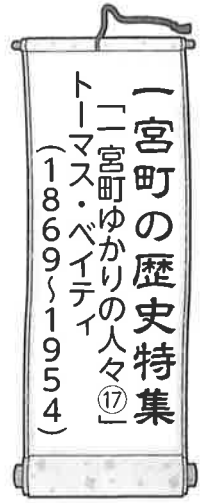 一宮町の歴史特集
「一宮町ゆかりの人々⑰」
トーマス・ベイティ
(1869~1954)